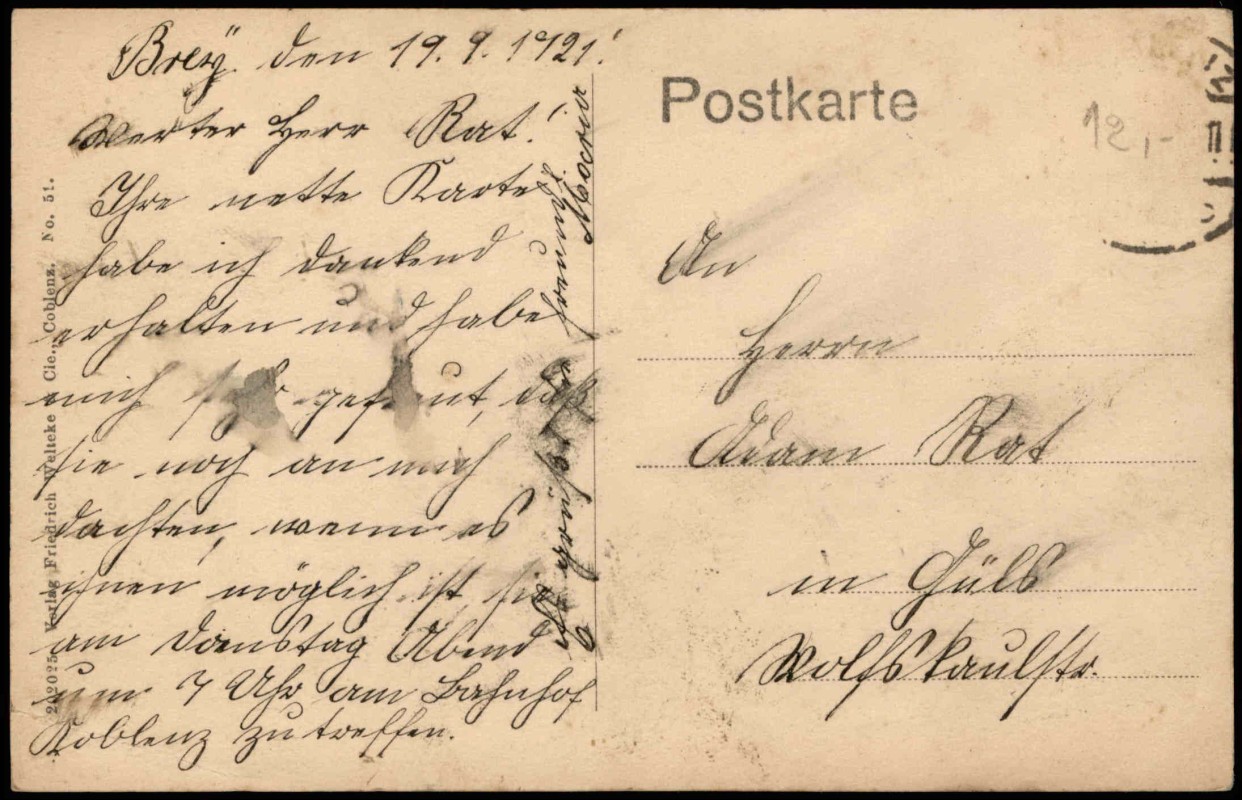 Breÿ. den 19. 9. 1921.
Werter Herr Rat!
Ihre nette Karte
habe ich dankend
erhalten und habe
mich gefreut, daß
sie noch an mich
dachten, wenn es
ihnen möglich ist sie
am Dienstag Abend
um 7 Uhr am Bahnhof
Koblenz zu treffen.
Es grüßt Ihre Freundin
Maria
202025 Verlag Friedrich Welicke Cie., Coblenz. No. 51.
Postkarte
12,-
An
Herrn
Adam Rat
in Güls
Wolfskaulstr.